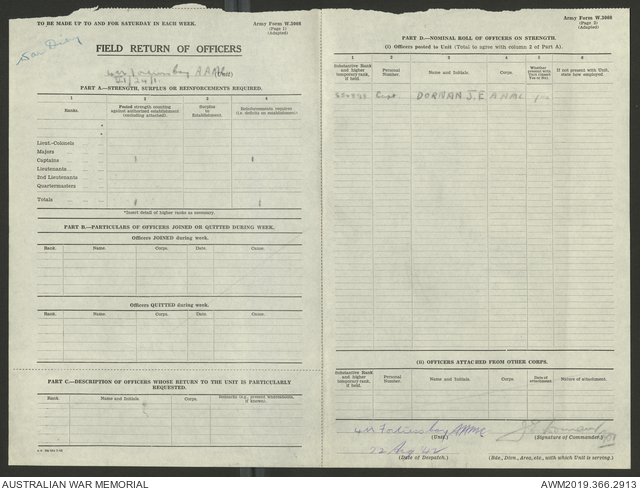 TO BE MADE UP TO AND FOR SATURDAY IN EACH WEEK.
Army Form W.3008
(Page 1)
(Adapted)
FIELD RETURN OF OFFICERS
(Unit)
PART A.—STRENGTH, SURPLUS OR REINFORCEMENTS REQUIRED.
1 2 3 4
Ranks. Posted strength counting against authorised establishment (excluding attached). Surplus to Establishment. Reinforcements required (i.e. deficits on establishment)
*
*
Lieut.-Colonels
Majors
Captains 1 1
Lieutenants
2nd Lieutenants
Quartermasters
Totals 1 1
*Insert detail of higher ranks as necessary.
PART B.—PARTICULARS OF OFFICERS JOINED OR QUITTED DURING WEEK.
Officers JOINED during week.
Rank. Name. Corps. Date. Cause.
Officers QUITTED during week.
Rank. Name. Corps. Date. Cause.
PART C.—DESCRIPTION OF OFFICERS WHOSE RETURN TO THE UNIT IS PARTICULARLY REQUESTED.
Rank. Name and Initials. Corps. Remarks (e.g., present whereabouts, if known).
Army Form W.3008
(Page 2)
(Adapted)
PART D.—NOMINAL ROLL OF OFFICERS ON STRENGTH.
(i) Officers posted to Unit (Total to agree with column 2 of Part A).
1 2 3 4 5 6
Substantive Rank and higher temporary rank, if held. Personal Number. Name and Initials. Corps. Whether present with Unit If not present with Unit, state how employed.
Capt. DORNAN J.E AAMC
(ii) OFFICERS ATTACHED FROM OTHER CORPS.
Substantive Rank and higher temporary rank, if held. Personal Number. Name and Initials. Corps. Date of attachment. Nature of attachment.
AAMC
(Unit.) (Signature of Commander.)
12 Aug 42
(Date of Despatch.) (Bde., Divn., Area, etc., with which Unit is serving.)
AUSTRALIAN WAR MEMORIAL AWM2019.366.2913